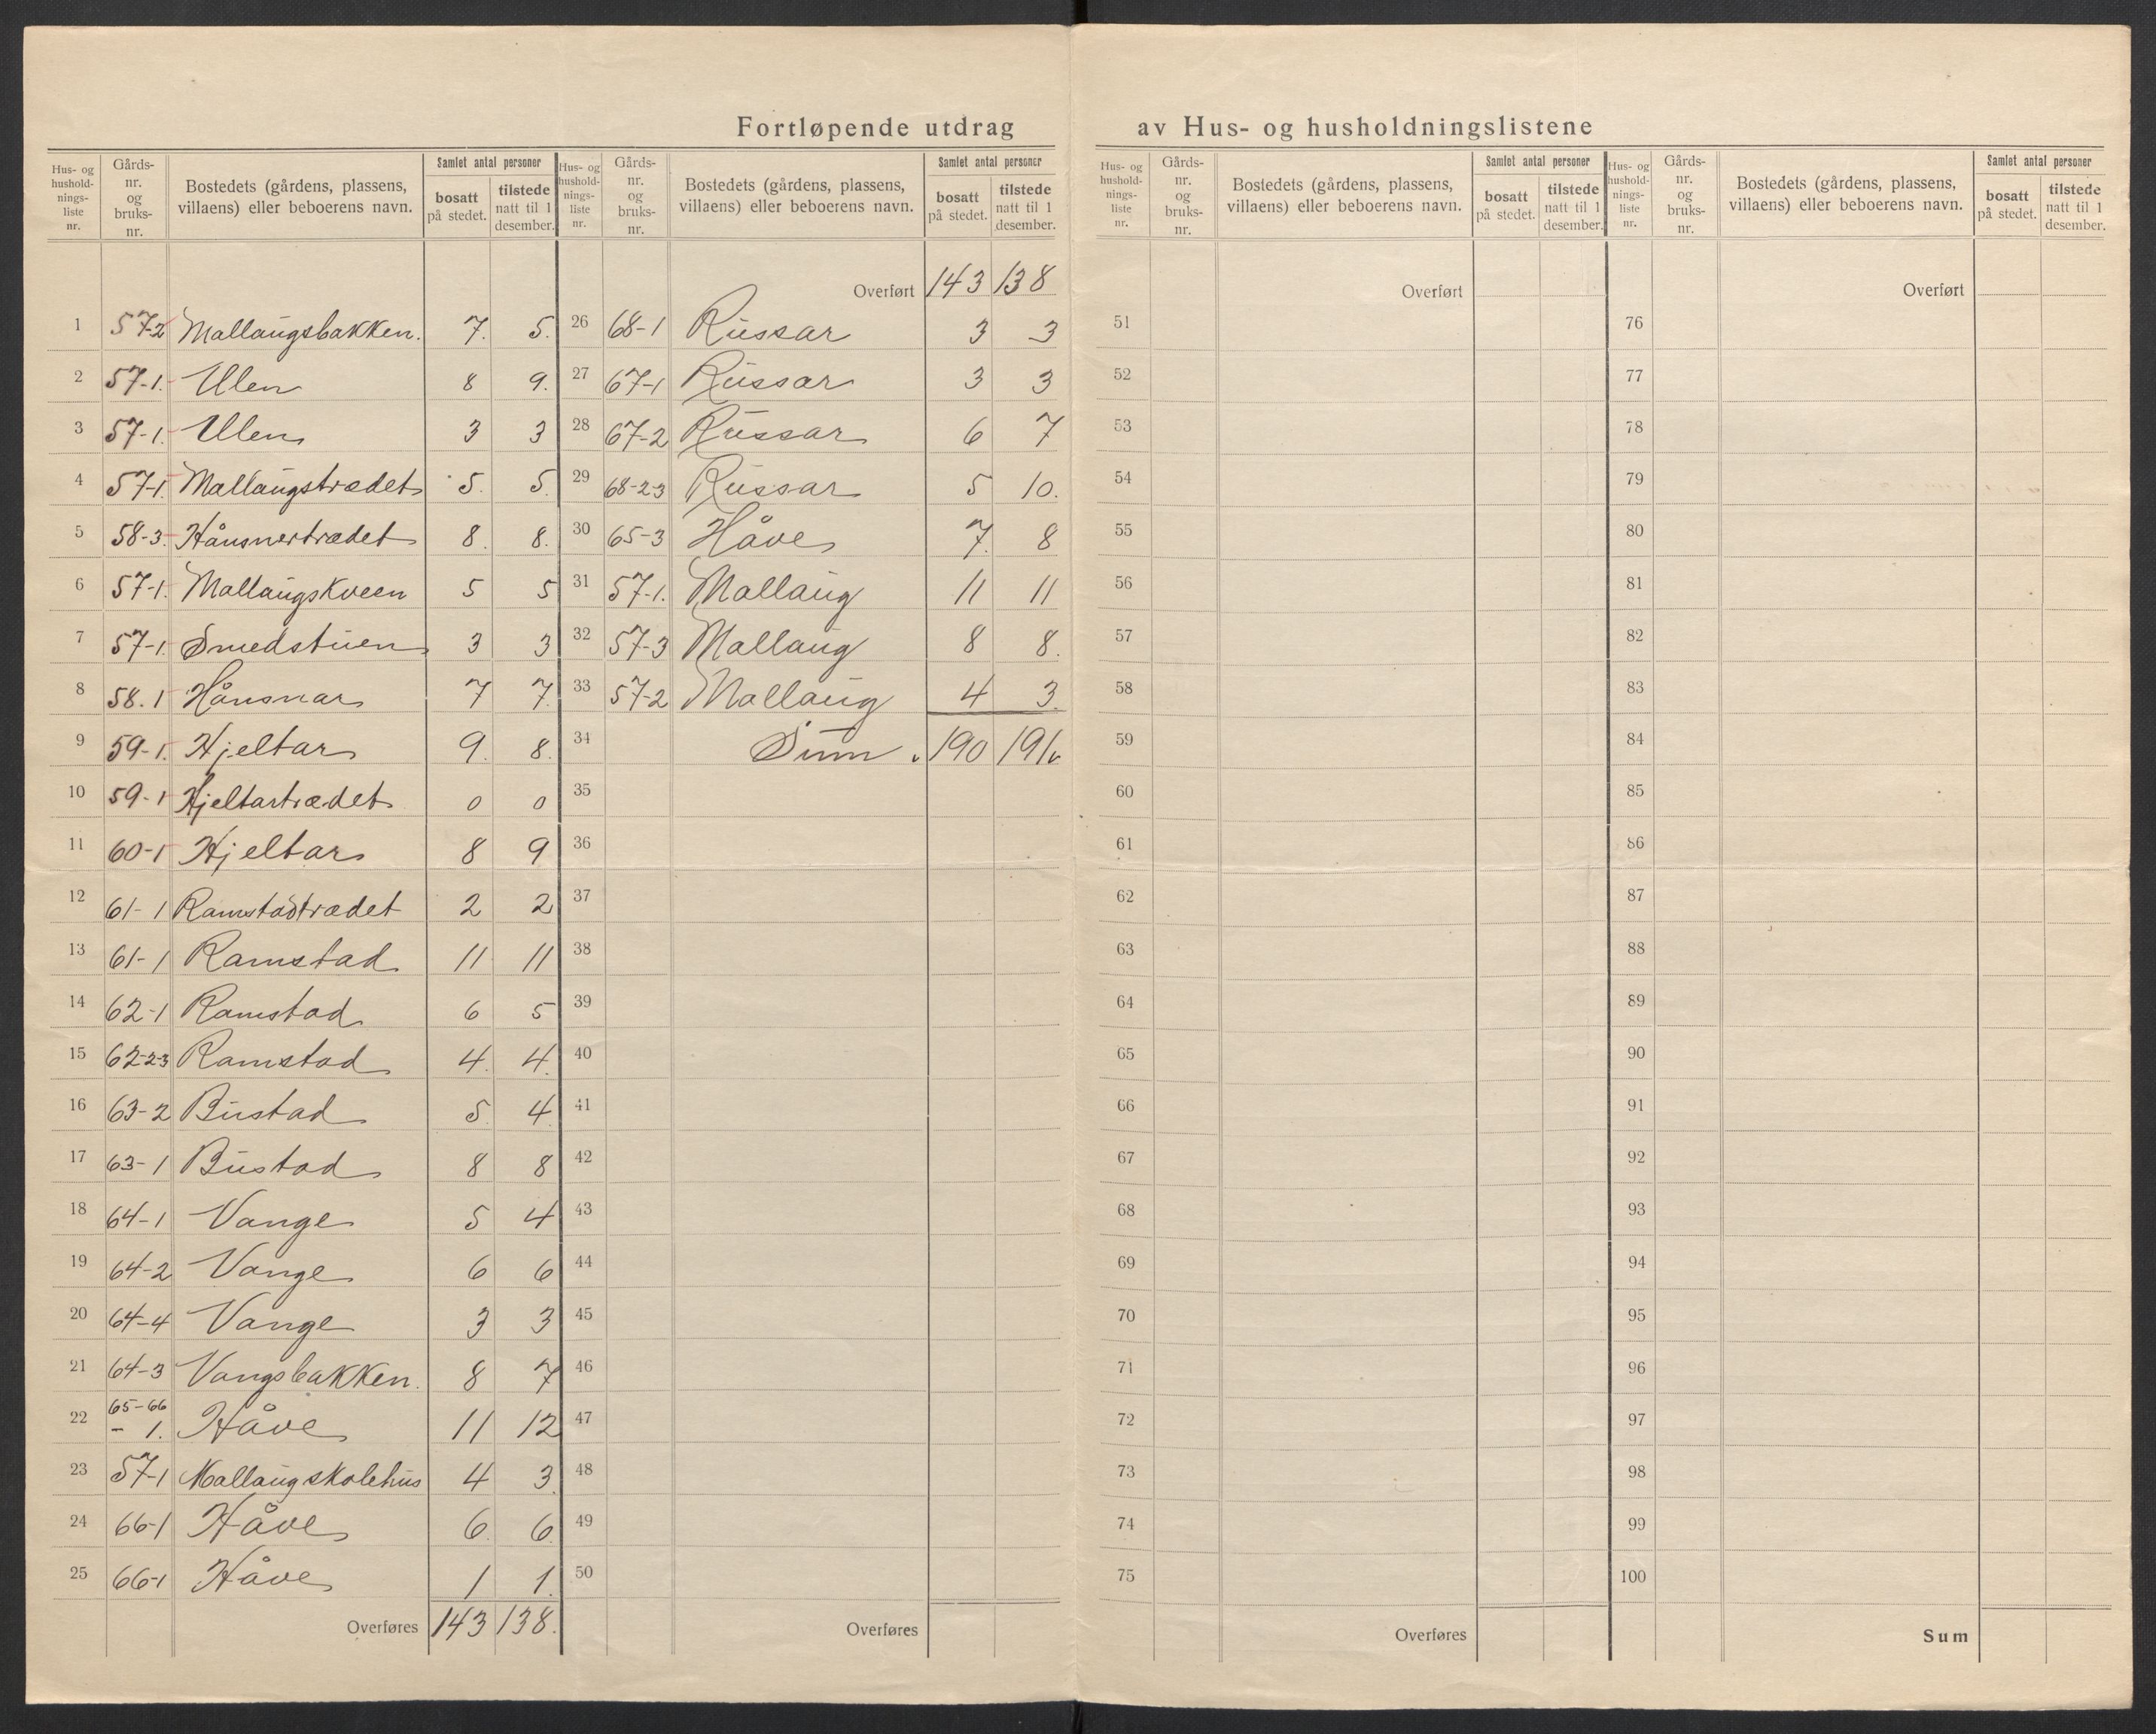 Fortløpende utdrag av Hus- og husholdningslistene
Hus- og husholdnings-liste nr. Gårds-nr. og bruks-nr. Bostedets (gårdens, plassens, villaens) eller beboerens navn. Samlet antal personer bosatt på stedet. tilstede natt til 1 desember.
1 57-2 Mallaugsbakken. 7. 5.
2 57-1. Ulen 8 9.
3 57-1. Ulen 3 3
4 57-1. Mallaugstrædet 5. 5.
5 58-3. Hånsnertrædet 8. 8.
6 57-1. Mallaugskveen 5 5
7 57-1. Smedstuen 3 3
8 58.1 Hånsnar 7 7.
9 59-1. Hjeltar 9. 8.
10 59-1 Hjeltartrædet 0 0
11 60-1 Hjeltar 8 9
12 61-1 Ramstadtrædet 2 2
13 61-1 Ramstad 11 11
14 62-1 Ramstad 6 5
15 62-2-3 Ramstad 4. 4.
16 63-2 Bustad 5 4
17 63-1 Bustad 8 8
18 64-1 Vange 5 4
19 64-2 Vange 6 6
20 64-4 Vange 3 3
21 64-3 Vangsbakken. 8 7
22 65-66 - 1. Håve 11 12
23 57-1 Mallaugskolehus 4 3
24 66-1 Håve 6. 6.
25 66-1 Håve 1 1.
Overføres 143 138.
Hus- og husholdnings-liste nr. Gårds-nr. og bruks-nr. Bostedets (gårdens, plassens, villaens) eller beboerens navn. Samlet antal personer bosatt på stedet. tilstede natt til 1 desember.
Overført 143 138
26 68-1 Russar 3 3
27 67-1 Russar 3 3
28 67-2 Russar 6 7
29 68-2-3 Russar 5 10.
30 65-3 Håve 7. 8
31 57-1. Mallaug 11 11
32 57-3 Mallaug 8 8.
33 57-2 Mallaug 4 3.
34 Sum. 190 191
35
36
37
38
39
40
41
42
43
44
45
46
47
48
49
50
Overføres
Hus- og husholdnings-liste nr. Gårds-nr. og bruks-nr. Bostedets (gårdens, plassens, villaens) eller beboerens navn. Samlet antal personer bosatt på stedet. tilstede natt til 1 desember.
Overført
51
52
53
54
55
56
57
58
59
60
61
62
63
64
65
66
67
68
69
70
71
72
73
74
75
Overføres
Hus- og husholdnings-liste nr. Gårds-nr. og bruks-nr. Bostedets (gårdens, plassens, villaens) eller beboerens navn. Samlet antal personer bosatt på stedet. tilstede natt til 1 desember.
Overført
76
77
78
79
80
81
82
83
84
85
86
87
88
89
90
91
92
93
94
95
96
97
98
99
100
Sum